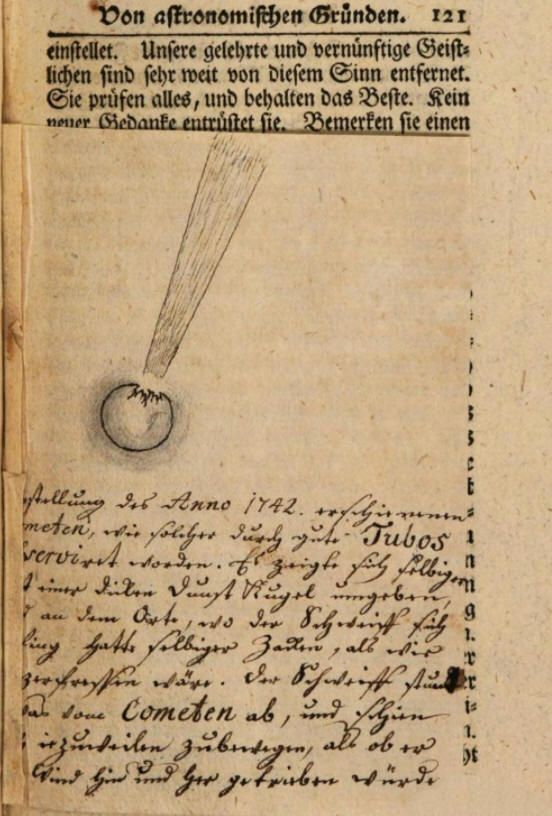 Von astronomischen Gründen. 121
einstellet. Unsere gelehrte und vernünftige Geist-
lichen sind sehr weit von diesem Sinn entfernet.
Sie prüfen alles, und behalten das Beste. Kein
neuer Gedanke entrüstet sie. Bemerken sie einen
stellung des Anno 1742. erschienenen
meten, wie solcher durch gute Tubos
serviret worden. Es zeigte sich selbiger
t einer dicken Dunst Kugel umgeben,
an dem Orte, wo der Schweiff sich
ling hatte selbiger Zacken, als wie
zerfressen wäre. Der Schweiff stund
was vom Cometen ab, und schien
iezuweilen zubewegen, als ob er
Wind hin und her getrieben würde